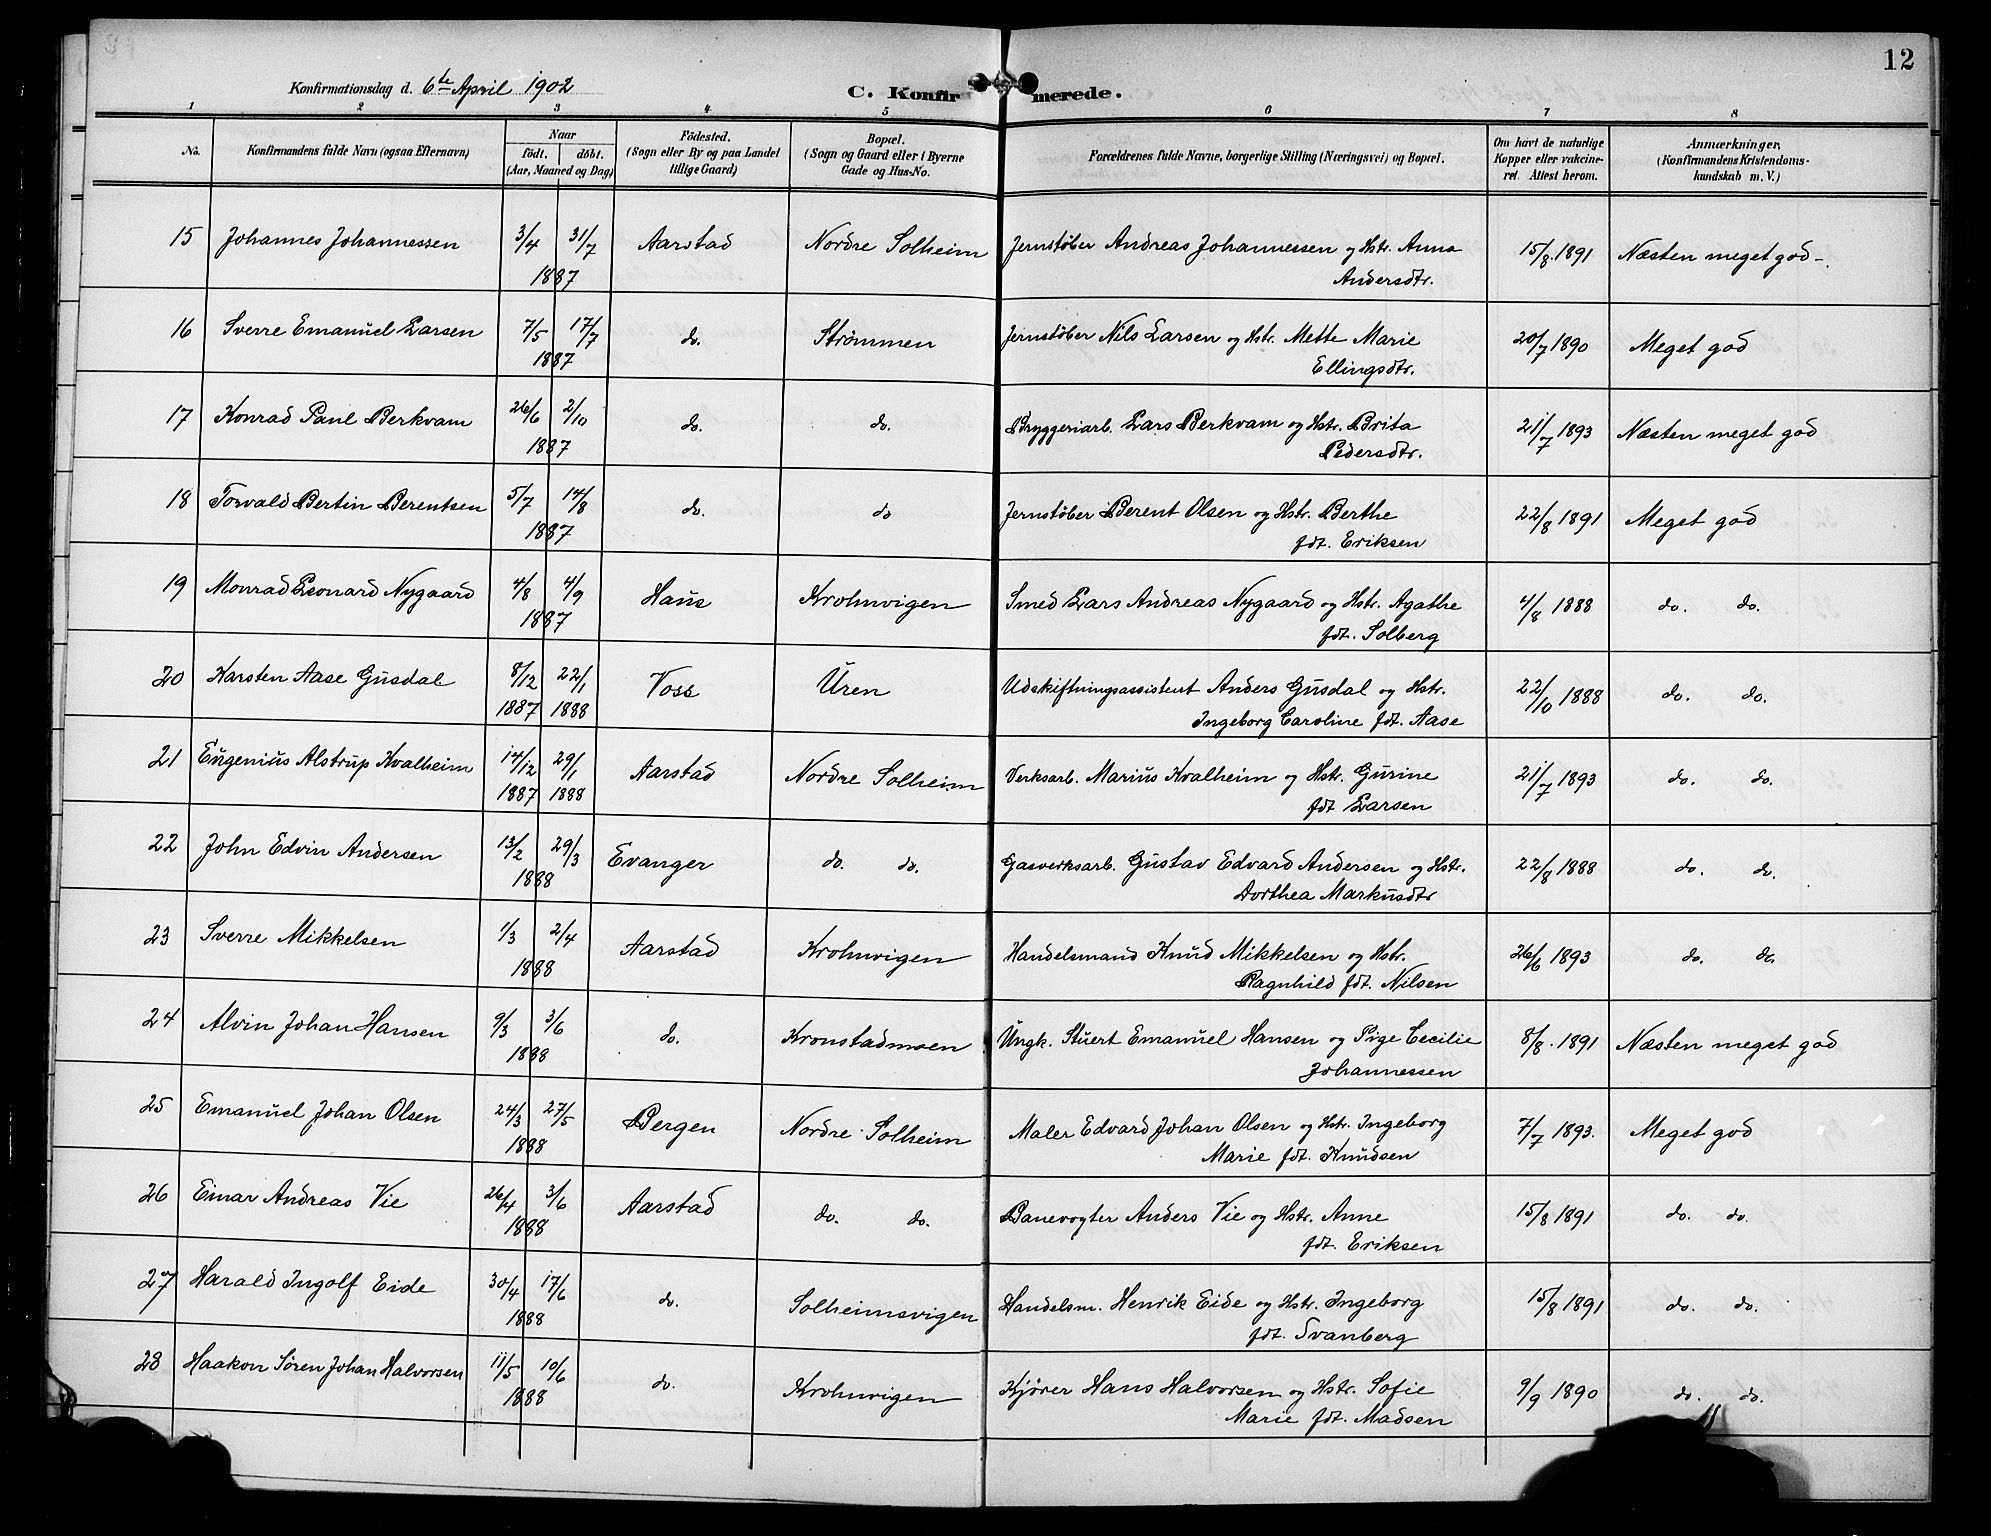 12
Konfirmationsdag d. 6te April 1902
C. Konfirmerede.
1 2 3 4 5 6 7 8
No. Konfirmandens fulde Navn (ogsaa Efternavn) Naar födt. döbt. (Aar, Maaned og Dag) Födested. (Sogn eller By og paa Landet tillige Gaard) Bopæl. (Sogn og Gaard eller i Byerne Gade og Hus-No. Forældrenes fulde Navne, borgerlige Stilling (Næringsvei) og Bopæl. Om havt de naturlige Kopper eller vakcineret. Attest herom. Anmærkninger. (Konfirmandens Kristendomskundskab m. V.)
15 Johannes Johannessen 3/4 31/7 Aarstad Nordre Solheim Jernstøber Andreas Johannessen og Hstr. Anna 15/8. 1891 Næsten meget god -
1887 Andersdtr.
16 Sverre Emanuel Larsen 7/5 17/7 do. Strømmen Jernstøber Nils Larsen og Hstr. Mette Marie 20/7 1890 Meget god
1887 Ellingsdtr.
17 Konrad Paul Berkvam 26/6 2/10 do. do. Bryggeriarb. Lars Berkvam og Hstr. Brita 21/7 1893 Næsten meget god
1887 Pedersdtr.
18 Torvald Bertin Berentsen 5/7 14/8 do. do Jernstøber Berent Olsen og Hstr. Berthe 22/8 1891 Meget god
1887 fdt. Eriksen
19 Monrad Leonard Nygaard 4/8 4/9 Haus Krohnvigen Smed Lars Andreas Nygaard og Hstr. Agathe 4/8 1888 do. do.
1887 fdt. Solberg
20 Karsten Aase Gusdal 8/12 22/1 Voss Uren Udskiftningsassistent Anders Gusdal og Hstr. 22/10 1888 do. do.
1887 1888 Ingeborg Caroline fdt. Aase
21 Eugenius Alstrup Kvalheim 14/12 29/1 Aarstad Nordre Solheim Verksarb. Marius Kvalheim og Hstr. Gurine 21/7 1893 do. do.
1887 1888 fdt Larsen
22 John Edvin Andersen 13/2 29/3 Evanger do. do. Gasverksarb. Gustav Edvard Andersen og Hstr. 22/8 1888 do. do.
1888 Dorthea Markusdtr
23 Sverre Mikkelsen 1/3 2/4 Aarstad Krohnvigen Handelsmand Knud Mikkelsen og Hstr. 26/6 1893 do. do.
1888 Ragnhild fdt. Nilsen
24 Alvin Johan Hansen 9/3 3/6 do. Kronstadmoen Ungk. Stuert Emanuel Hansen og Pige Cecilie 8/8. 1891 Næsten meget god
1888 Johannessen
25 Emanuel Johan Olsen 24/3 27/5 Bergen Nordre Solheim Maler Edvard Johan Olsen og Hstr. Ingeborg 7/7 1893. Meget god
1888 Marie fdt. Knudsen
26 Einar Andreas Vie 26/4 3/6 Aarstad do. do. Banevogter Anders Vie og Hstr. Anne 15/8 1891 do. do.
1888 fdt. Eriksen
27 Harald Ingolf Eide 30/4 17/6 do. Solheimsvigen Handelsm. Henrik Eide og Hstr. Ingeborg 15/8 1891 do. do.
1888 fdt. Svanberg
28 Haakon Søren Johan Halvorsen 11/5 10/6 do. Krohnvigen Kjører Hans Halvorsen og Hstr. Sofie 9/9 1890 do. do.
1888 Marie fdt. Madsen